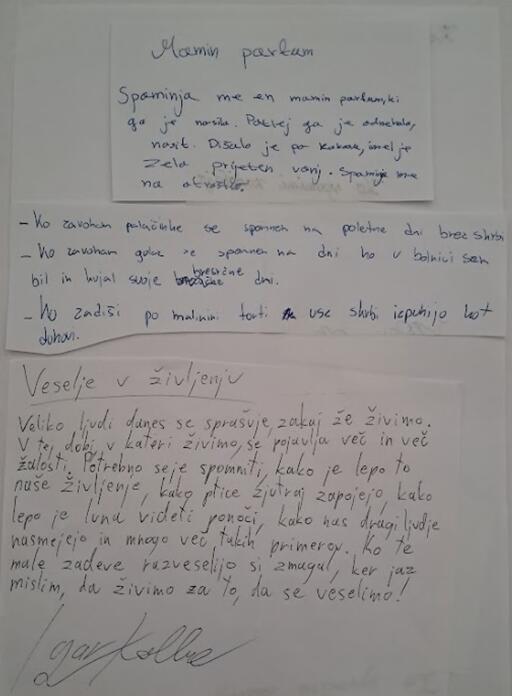 Mamin parfum
Spominja me en mamin parfum, ki
ga je nosila. Potlej ga je odnehala
nosit. Dišalo je po kokos, imel je
zelo prijeten vonj. Spominja me
na otroštvo.
- Ko zavoham palačinke se spomnem na poletne dni brez skrbi
- Ko zavoham se spomnem na dni ko v bolnici sem
bil in hujal svoje bresrčne dni.
- Ko zadiši po malinini torti vse skrbi izpuhtijo kot
duhovi.
Veselje v življenju
Veliko ljudi danes se sprašuje, zakaj že živimo.
V tej dobi, v kateri živimo, se pojavlja več in več
žalosti. Potrebno se je spomniti, kako je lepo to
naše življenje, kako ptice zjutraj zapojejo, kako
lepo je luno videti ponoči, kako nas dragi ljudje
nasmejejo in mnogo več takih primerov. Ko te
male zadeve razveselijo si zmagal, ker jaz
mislim, da živimo za to, da se veselimo!